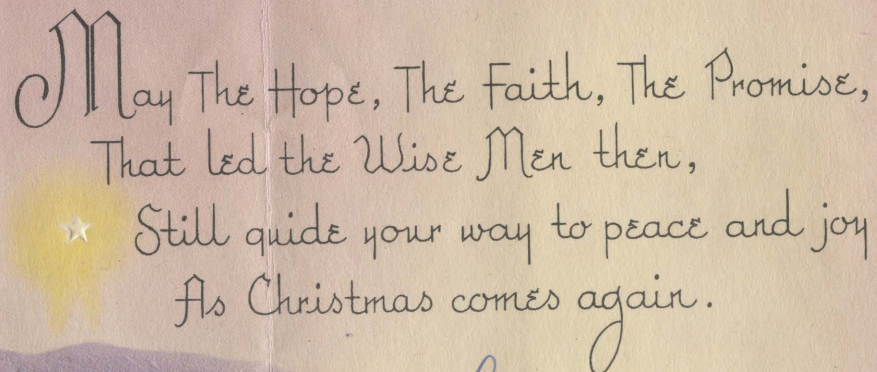 May The Hope, The Faith, The Promise,
That led the Wise Men then,
Still guide your way to peace and joy
As Christmas comes again.